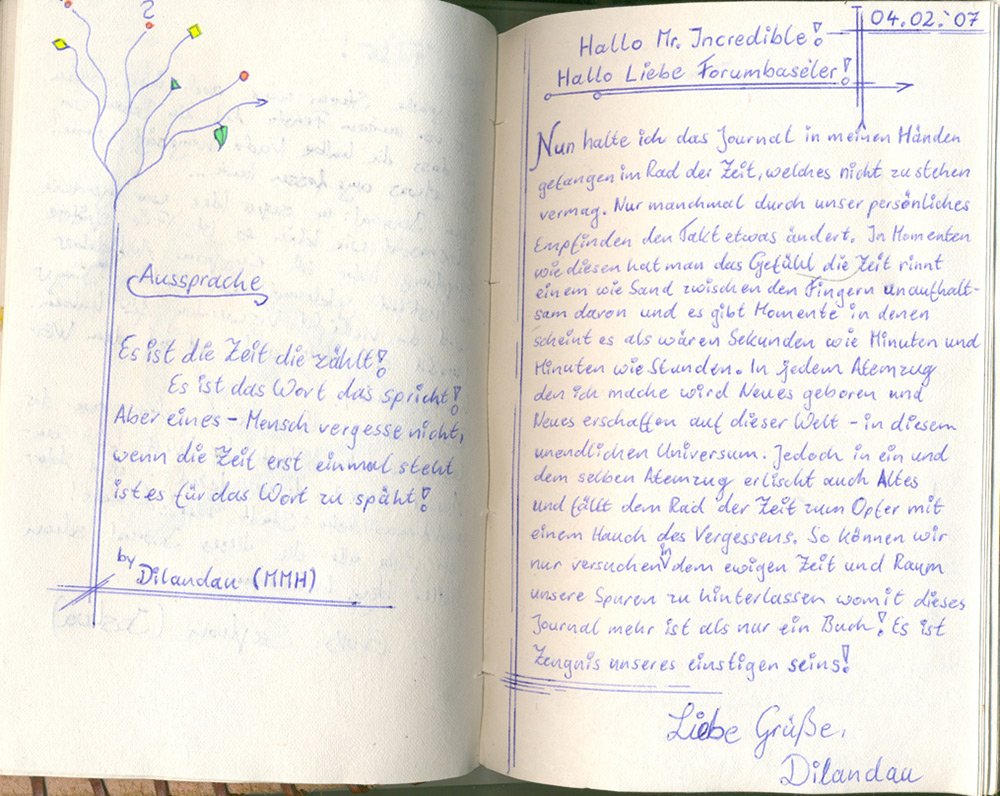 Aussprache
Es ist die Zeit die zählt!
Es ist das Wort das spricht!
Aber eines - Mensch vergesse nicht,
wenn die Zeit erst einmal steht
ist es für das Wort zu späht!
by
Dilandau (MMH)
04.02.'07
Hallo Mr. Incredible!
Hallo Liebe Forumbaseler!
Nun halte ich das Journal in meinen Händen
gefangen im Rad der Zeit, welches nicht zu stehen
vermag. Nur manchmal durch unser persönliches
Empfinden den Takt etwas ändert. In Momenten
wie diesen hat man das Gefühl die Zeit rinnt
einem wie Sand zwischen den Fingern unaufhalt-
sam davon und es gibt Momente in denen
scheint es als wären Sekunden wie Minuten und
Minuten wie Stunden. In jedem Atemzug
den ich mache wird Neues geboren und
Neues erschaffen auf dieser Welt - in diesem
unendlichen Universum. Jedoch in ein und
dem selben Atemzug erlischt auch Altes
und fällt dem Rad der Zeit zum Opfer mit
einem Hauch des Vergessens. So können wir
nur versuchen in dem ewigen Zeit und Raum
unsere Spuren zu hinterlassen womit dieses
Journal mehr ist als nur ein Buch! Es ist
Zeugnis unseres einstigen seins!
Liebe Grüße,
Dilandau